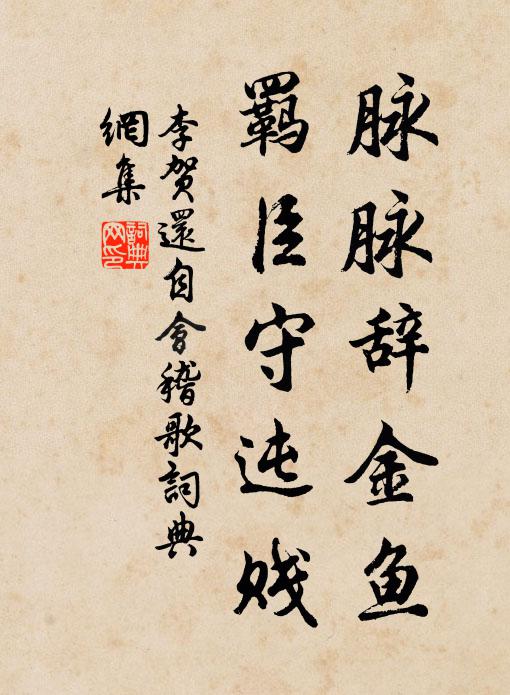 脉脉辞金鱼
羁臣守迍贱
李贺還自會稽歌詞典
網集
詞典网印